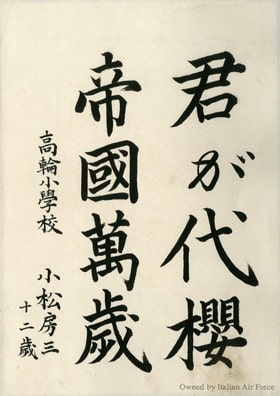 君が代櫻
帝國萬歲
高輪小學校
小松房三
十二歲
Owned by Italian Air Force